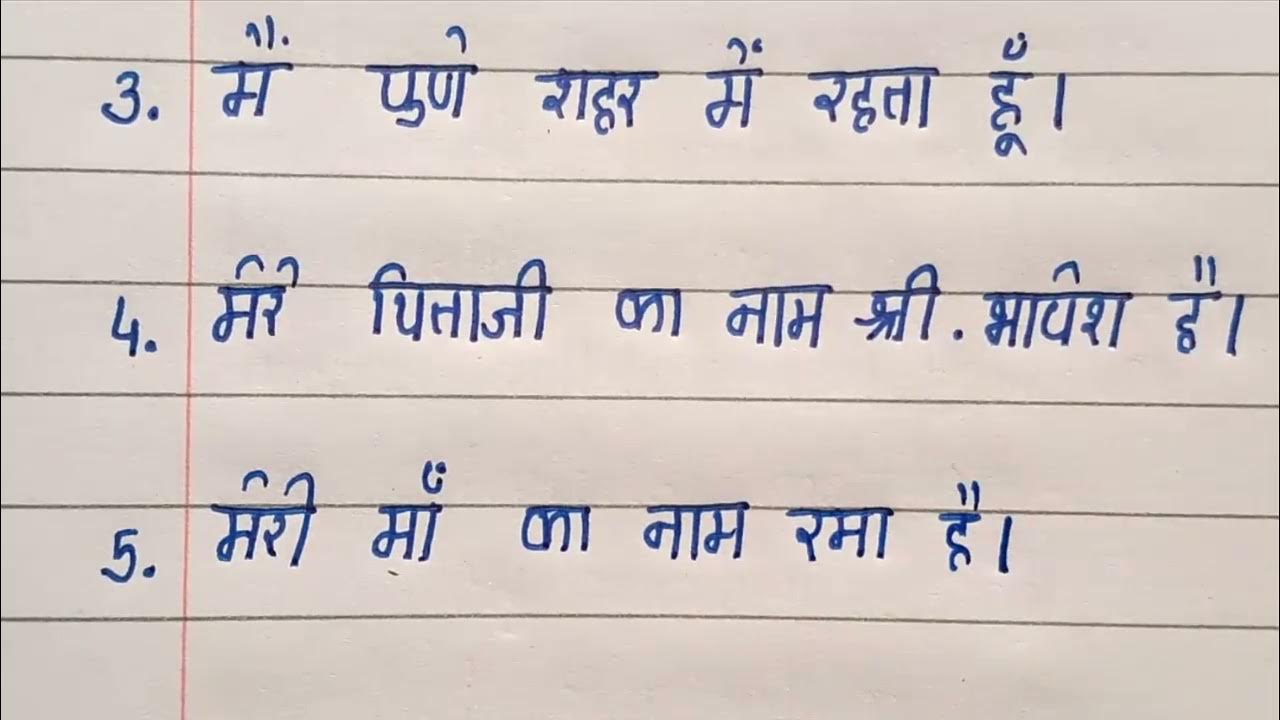 3. मैं पुणे शहर में रहता हूँ।
4. मेरे पिताजी का नाम श्री. भावेश है।
5. मेरी माँ का नाम रमा है।